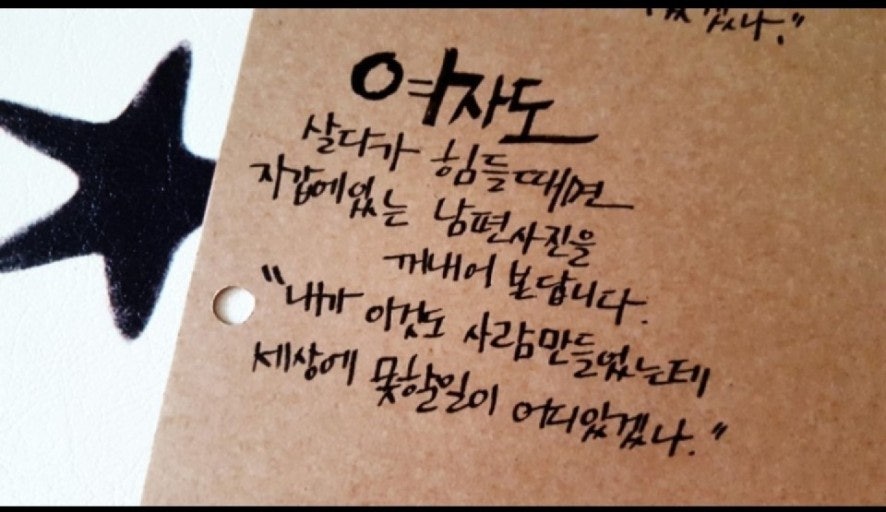 겠나."
여자도
살다가 힘들때면
지갑에있는 남편사진을
꺼내어 본답니다.
"내가 이것도 사람만들었는데
세상에 못할일이 어디있겠나."